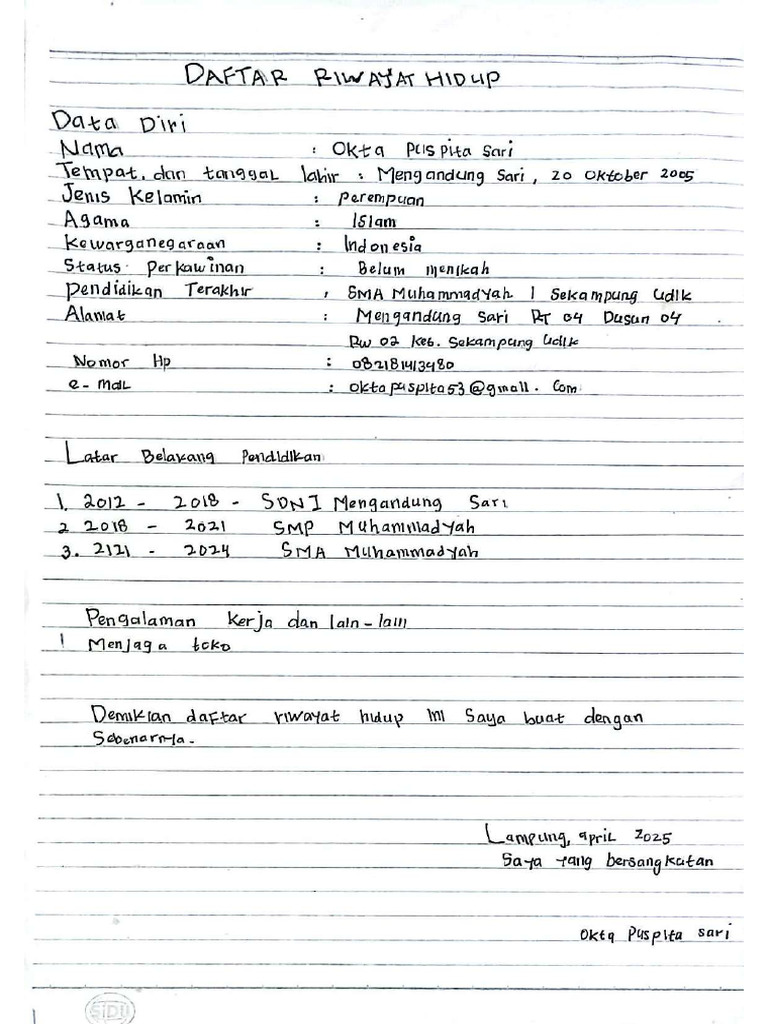 DAFTAR RIWAYAT HIDUP
Data Diri
Nama : Okta Puspita Sari
Tempat, dan tanggal lahir : Mengandung Sari, 20 Oktober 2005
Jenis Kelamin : Perempuan
Agama : Islam
Kewarganegaraan : Indonesia
Status Perkawinan : Belum menikah
Pendidikan Terakhir : SMA Muhammadyah 1 Sekampung Udik
Alamat : Mengandung Sari RT 04 Dusun 04
RW 02 Kec. Sekampung Udik
Nomor Hp : 082181413480
e-mail : oktapuspita53@gmail.com
Latar Belakang Pendidikan
1. 2012 - 2018 - SDN1 Mengandung Sari
2 2018 - 2021 SMP Muhammadyah
3. 2121 - 2024 SMA Muhammadyah
Pengalaman Kerja dan lain-lain
1 Menjaga toko
Demikian daftar riwayat hidup ini Saya buat dengan
Sebenarnya.
Lampung, april 2025
Saya yang bersangkutan
Okta Puspita sari
SiDU